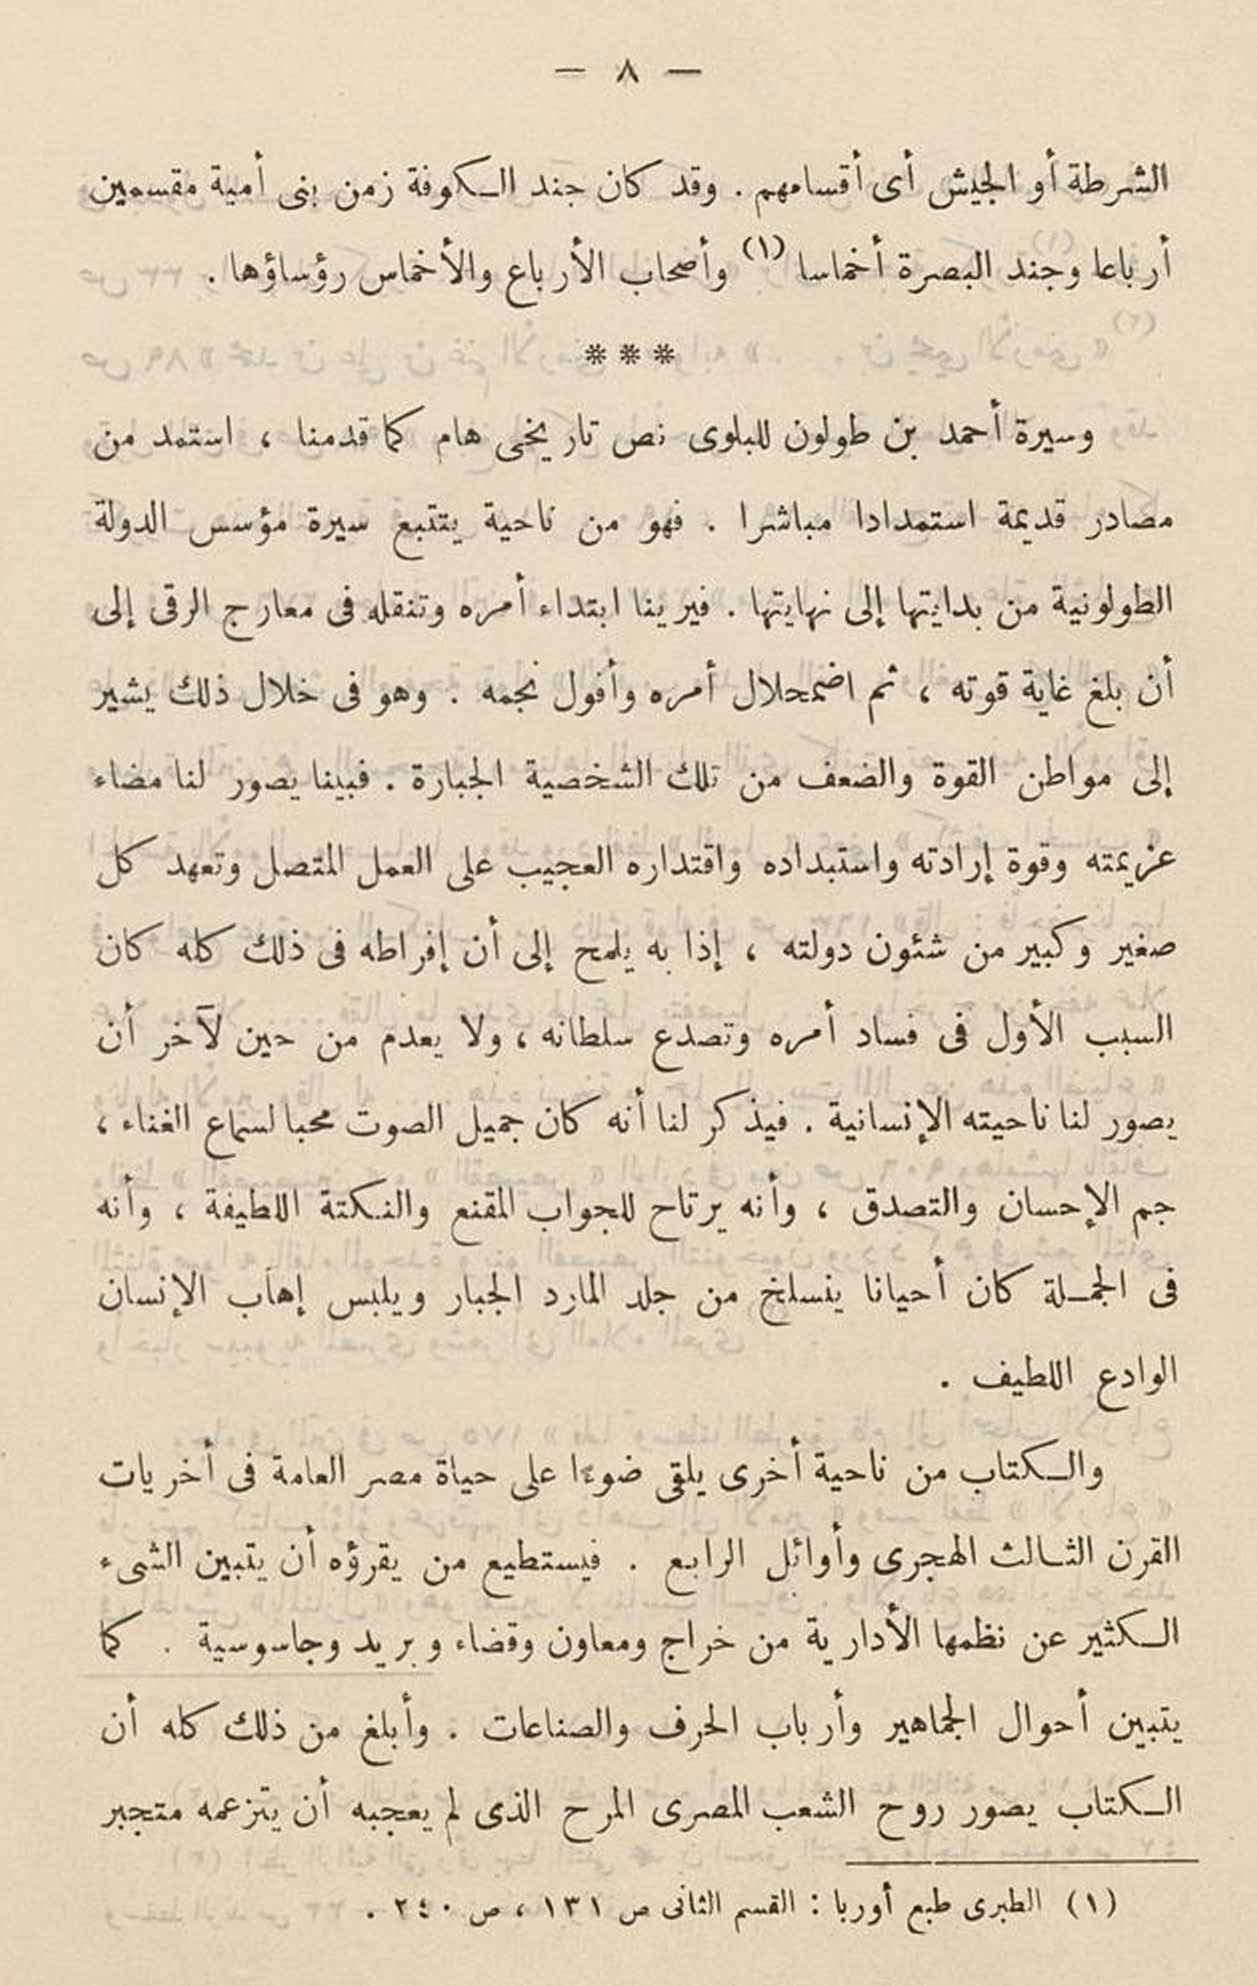 — ٨ —
الشرطة أو الجيش أى أقسامهم . وقد كان جند الكوفة زمن بنى أمية مقسمين
أرباعا وجند البصرة أخماسا (١) وأصحاب الأرباع والأخماس رؤساؤها .
***
وسيرة أحمد بن طولون للبلوى نص تاريخى هام كما قدمنا ، استمد من
مصادر قديمة استمدادا مباشرا . فهو من ناحية يتتبع سيرة مؤسس الدولة
الطولونية من بدايتها إلى نهايتها . فيرينا ابتداء أمره وتنقله فى معارج الرقى إلى
أن بلغ غاية قوته ، ثم اضمحلال أمره وأفول نجمه . وهو فى خلال ذلك يشير
إلى مواطن القوة والضعف من تلك الشخصية الجبارة . فبينا يصور لنا مضاء
عزيمته وقوة إرادته واستبداده واقتداره العجيب على العمل المتصل وتعهد كل
صغير وكبير من شئون دولته ، إذا به يلمح إلى أن إفراطه فى ذلك كله كان
السبب الأول فى فساد أمره وتصدع سلطانه ، ولا يعدم من حين لآخر أن
يصور لنا ناحيته الإنسانية . فيذكر لنا أنه كان جميل الصوت محبا لسماع الغناء ،
جم الإحسان والتصدق ، وأنه يرتاح للجواب المقنع والنكتة اللطيفة ، وأنه
فى الجملة كان أحيانا ينسلخ من جلد المارد الجبار ويلبس إهاب الإنسان
الوادع اللطيف .
والكتاب من ناحية أخرى يلقى ضوءا على حياة مصر العامة فى أخريات
القرن الثالث الهجرى وأوائل الرابع . فيستطيع من يقرؤه أن يتبين الشىء
الكثير عن نظمها الأدارية من خراج ومعاون وقضاء وبريد وجاسوسية . كما
يتبين أحوال الجماهير وأرباب الحرف والصناعات . وأبلغ من ذلك كله أن
الكتاب يصور روح الشعب المصرى المرح الذى لم يعجبه أن يتزعمه متجبر
(١) الطبرى طبع أوربا : القسم الثانى ص ١٣١ ، ص ٢٤٠ .